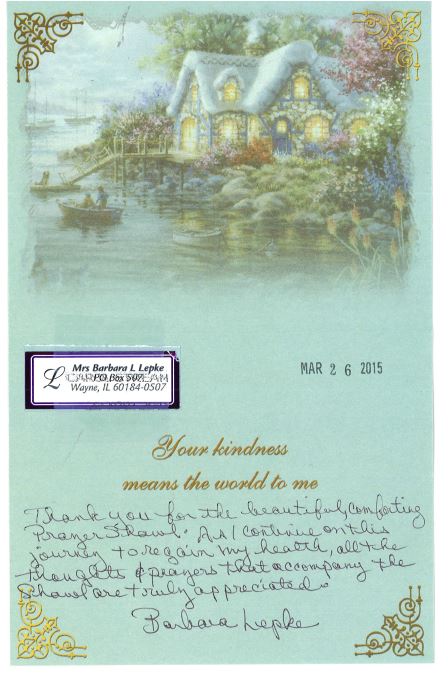 L
Mrs Barbara L Lepke
PO Box 507
Wayne, IL 60184-0507
MAR 26 2015
Your kindness
means the world to me
Thank you for the beautiful, comforting
Prayer Shawl. As I continue on this
journey to regain my health, all the
thoughts & prayers that accompany the
Shawl are truly appreciated.
Barbara Lepke